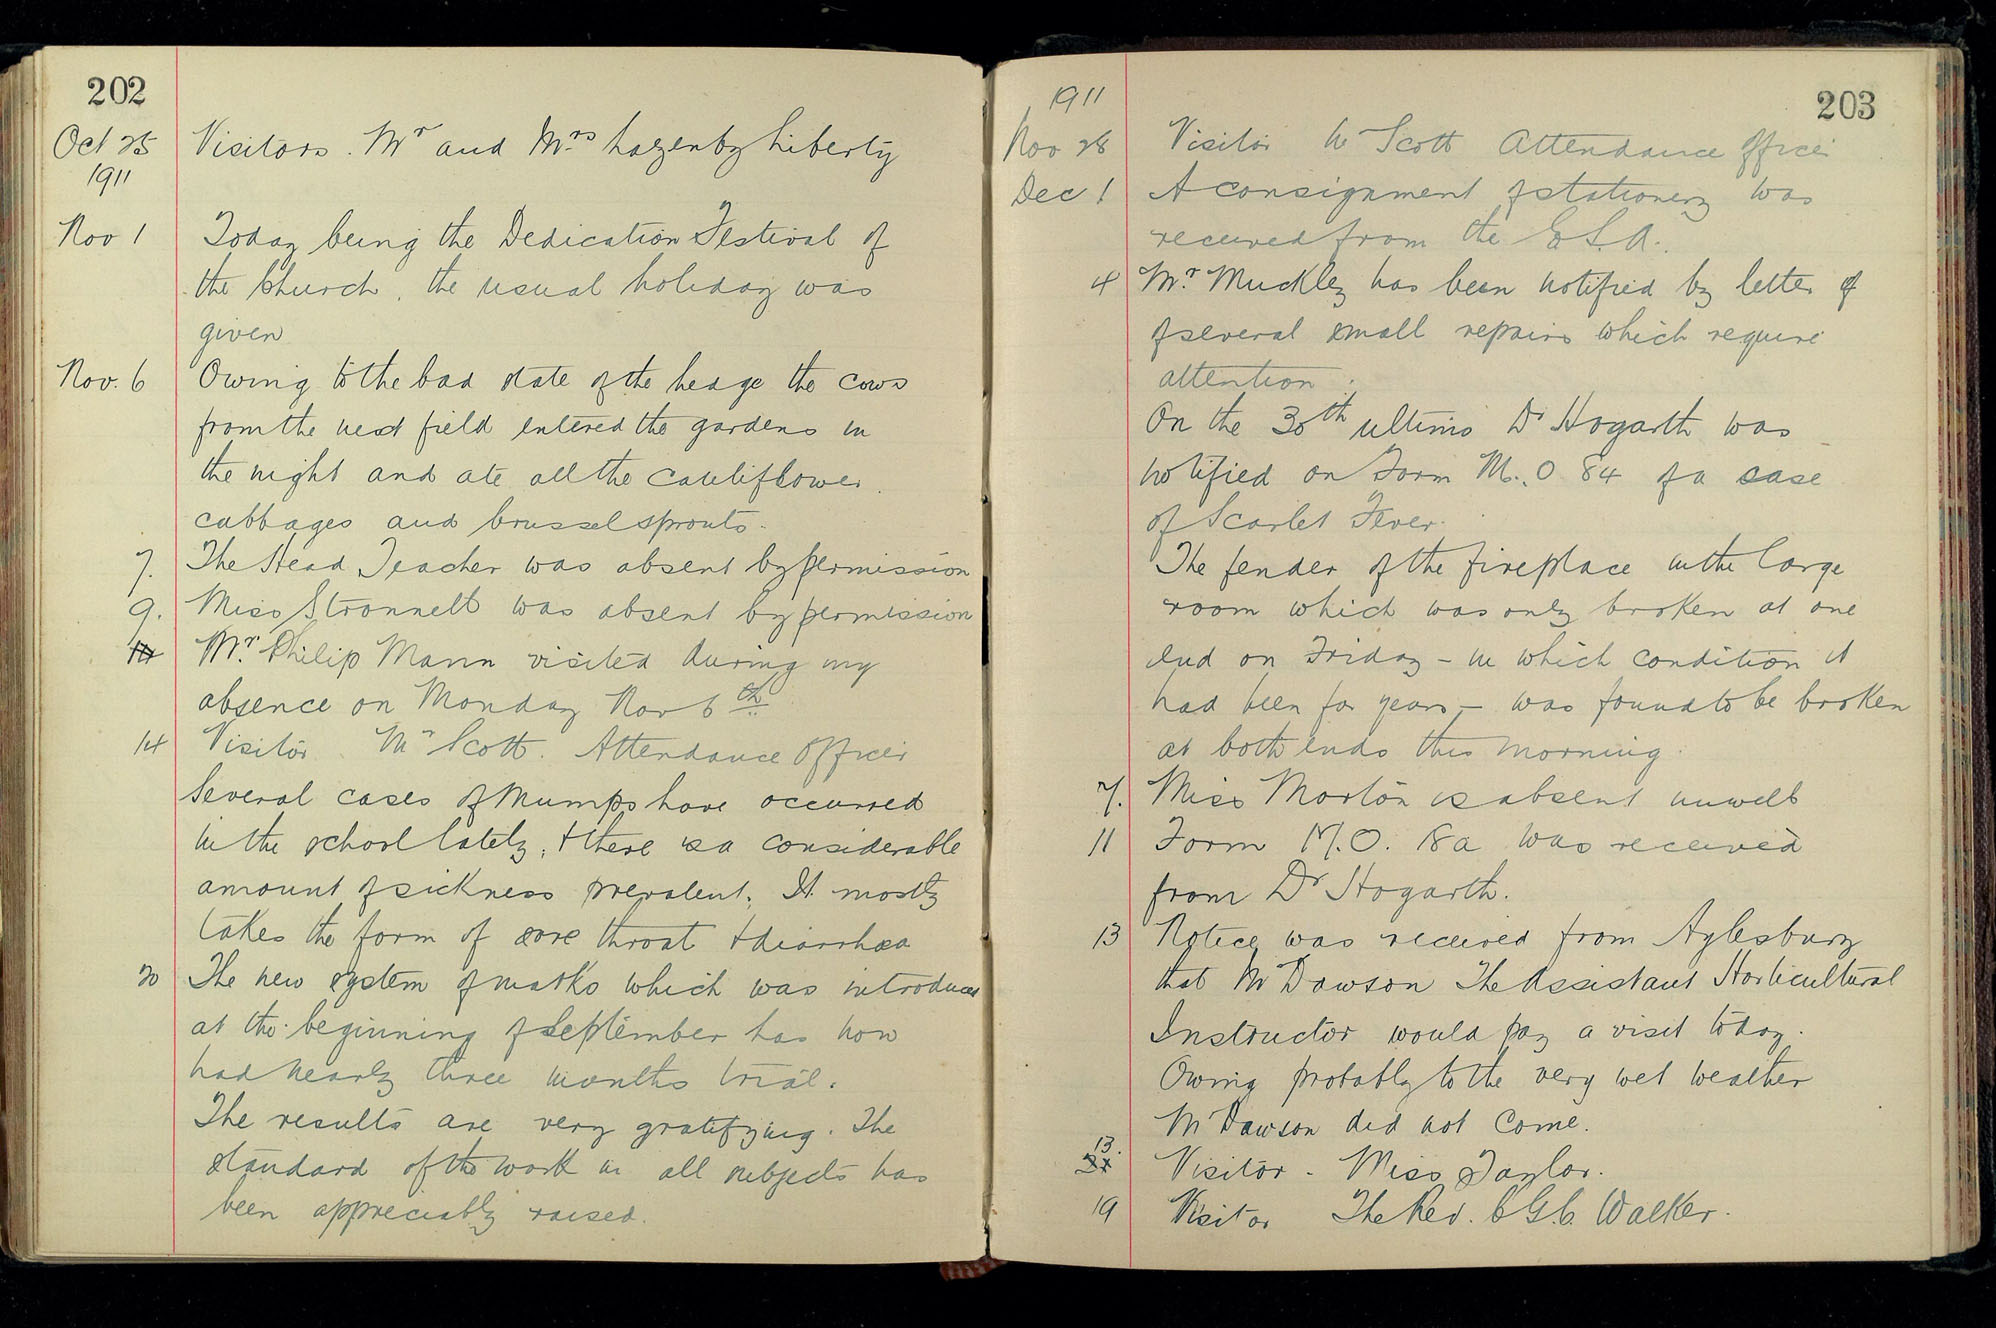 202
Oct 25 Visitors. Mr and Mrs Lazenby Liberty
1911
Nov 1 Today being the Dedication Festival of
the Church, the usual holiday was
given
Nov. 6 Owing to the bad state of the hedge the cows
from the next field entered the gardens in
the night and ate all the cauliflower
cabbages and brussel sprouts.
7. The Head Teacher was absent by permission
9. Miss Stonnell was absent by permission
Mr. Philip Mann visited during my
absence on Monday Nov 6th
14 Visitor Mr Scott. Attendance Officer
Several cases of Mumps have occurred
in the school lately, & there is a considerable
amount of sickness prevalent. It mostly
takes the form of sore throat & diarrhœa
20 The new system of marks which was introduced
at the beginning of September has now
had nearly three months trial.
The results are very gratifying. The
standard of the work in all subjects has
been appreciably raised.
203
1911
Nov 28 Visitor Mr Scott Attendance Officer
Dec 1 A consignment of stationery was
received from the E.S.A.
4 Mr. Muckley has been notified by letter of
of several small repairs which require
attention.
On the 30th ultimo Dr Hogarth was
notified on Form M.O 84 of a case
of Scarlet Fever.
The fender of the fireplace in the large
room which was only broken at one
end on Friday – in which condition it
had been for years – was found to be broken
at both ends this morning.
7. Miss Morton is absent unwell
11 Form M.O. 18a was received
from Dr Hogarth.
13 Notice was received from Aylesbury
that Mr Dawson The Assistant Horticultural
Instructor would pay a visit today.
Owing probably to the very wet weather
Mr Dawson did not come.
13. Visitor - Miss Taylor.
19 Visitor The Rev. C G. C. Walker.